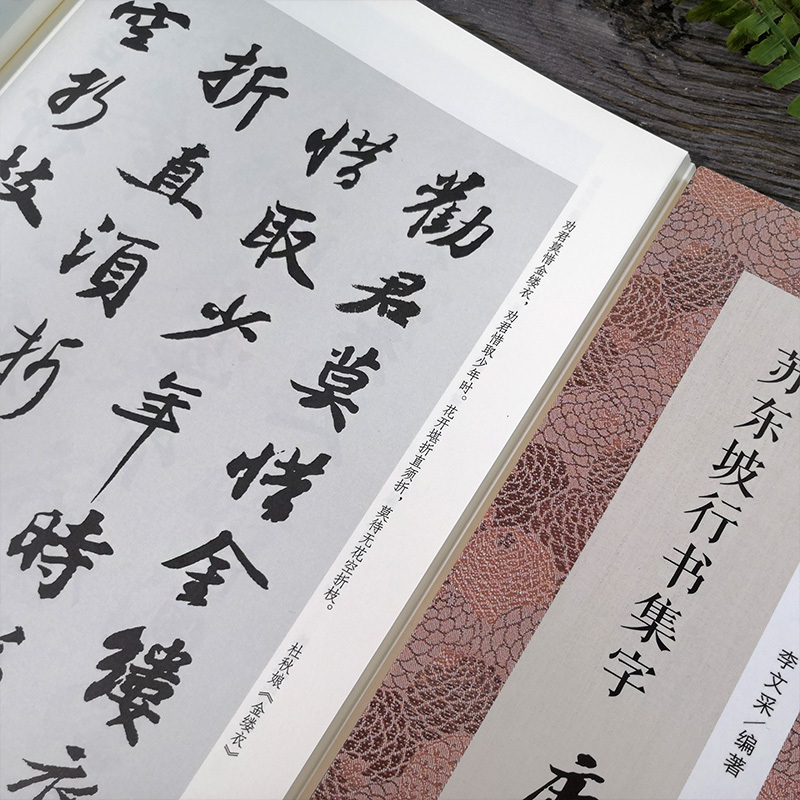 勸君莫惜金縷衣
惜取少年時
折直須折
空折枝
劝君莫惜金缕衣，劝君惜取少年时。花开堪折直须折，莫待无花空折枝。
杜秋娘《金缕衣》
苏东坡行书集字
李文采/编著